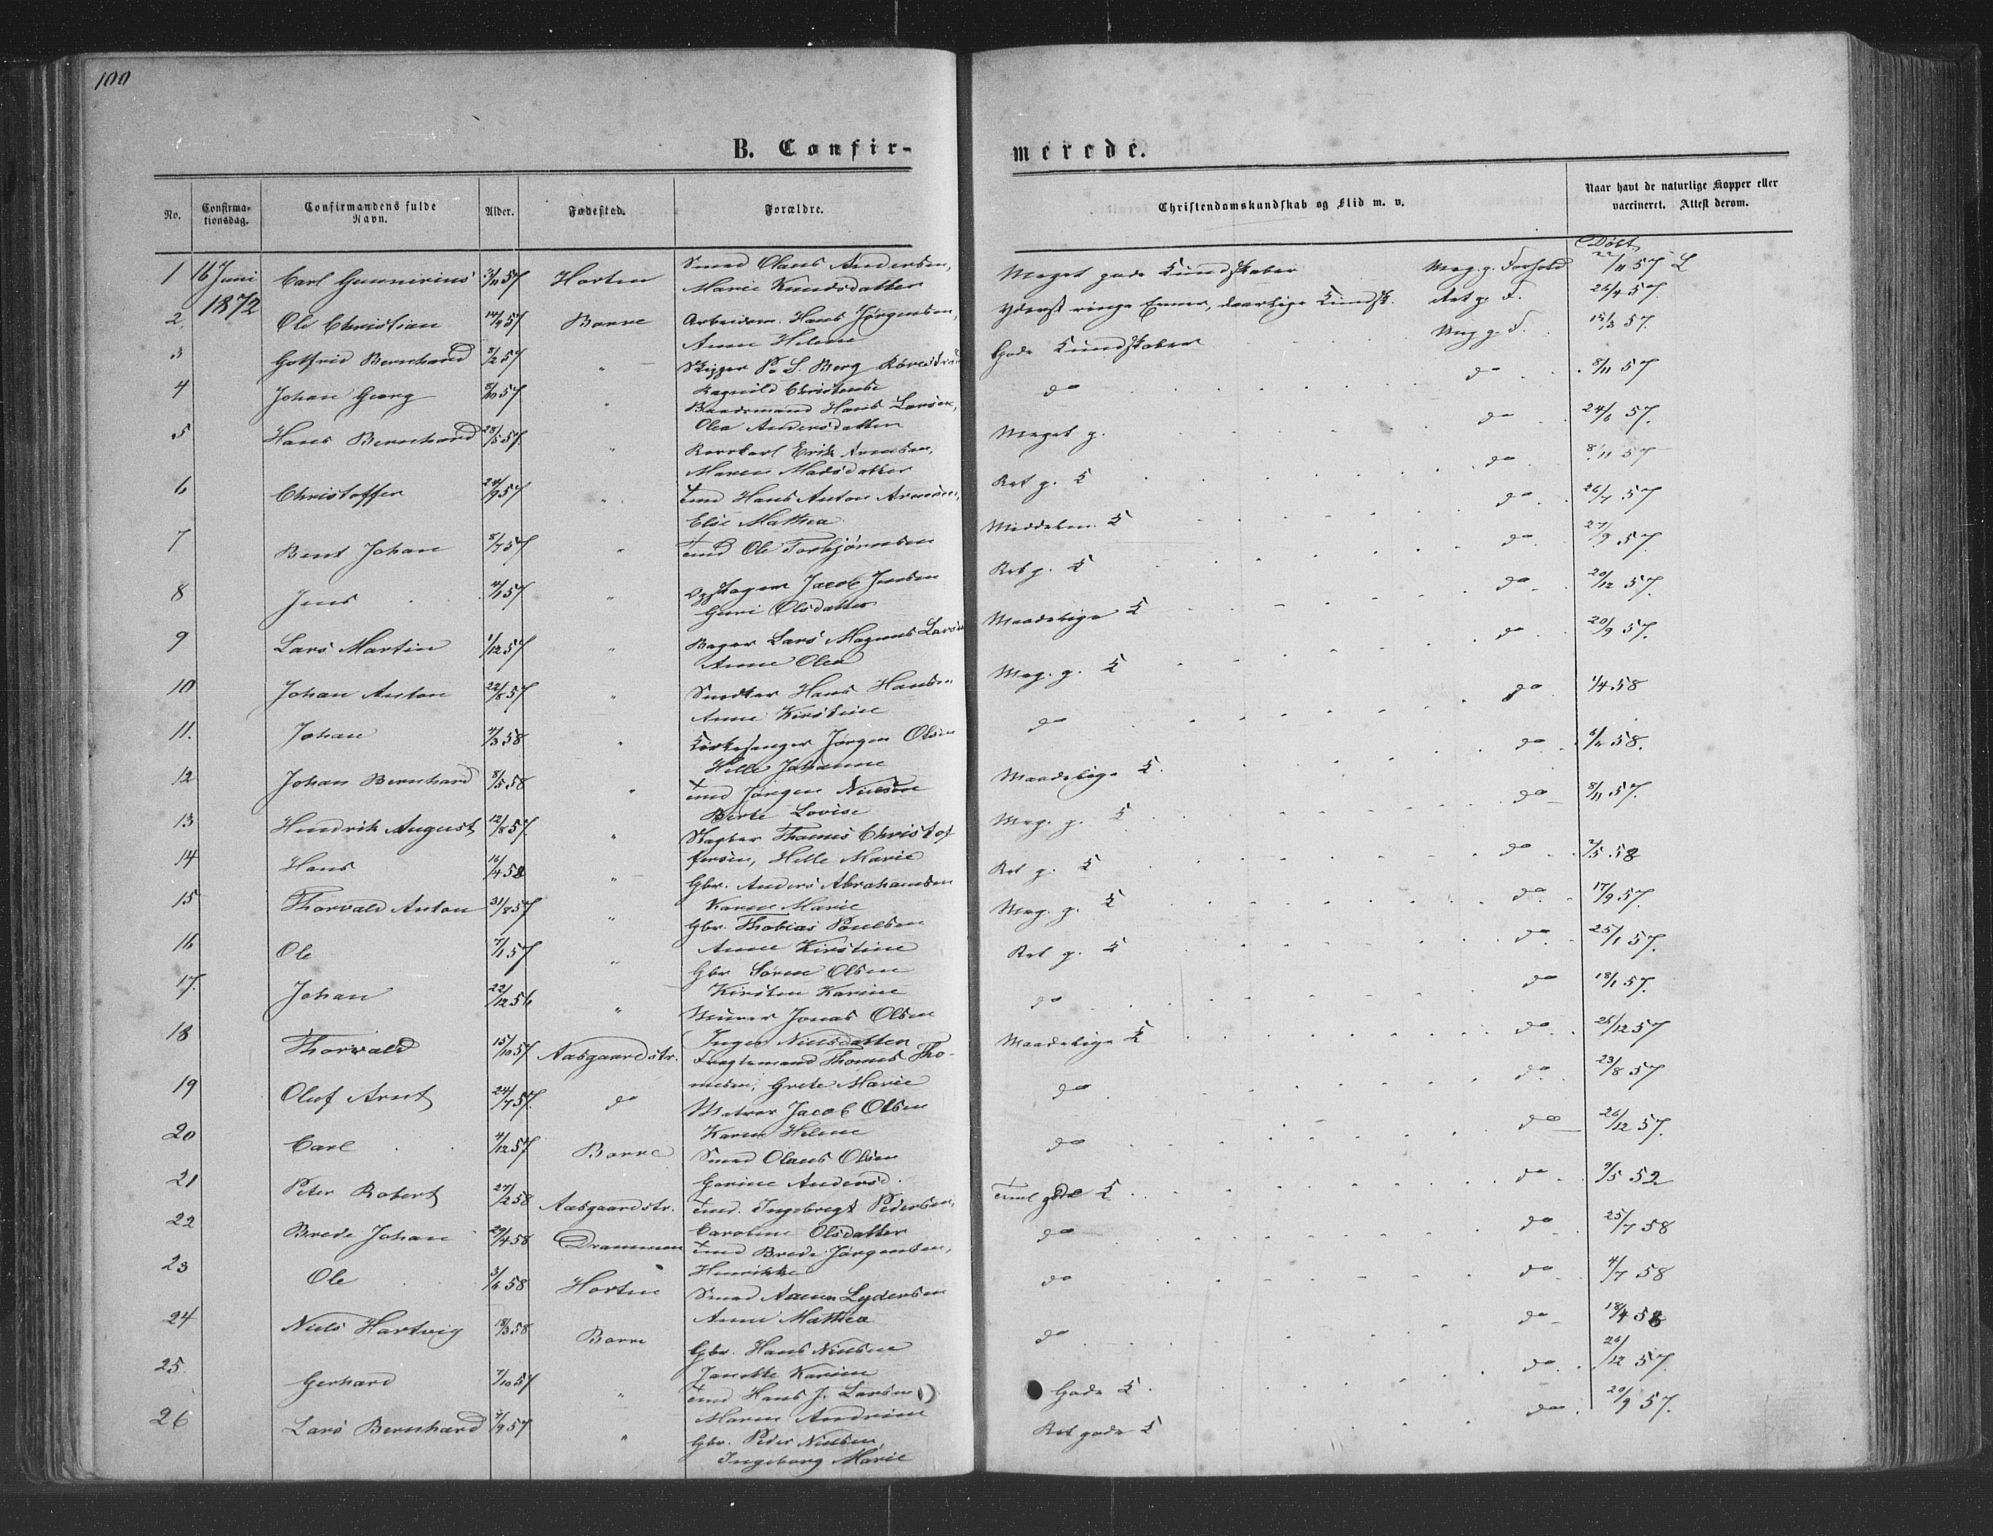 100
B. Confir-
merede.
No.
Confirma-
tionsdag.
Confirmandens fulde
Navn.
Alder.
Fødested.
Forældre.
Christendomskundskab og Flid m. v.
Naar havt de naturlige Kopper eller
vaccineret. Attest derom.
Døbt
1 16 Juni Carl Gunnerius 3/11 57 Horten Smed Olaus Andersen,
Marie Knudsdatter
Meget gode Kundskaber Meg. g. Forhold 22/11 57 L
1872
2. Ole Christian 14/9 57 Borre Arbeidsm. Hans Jørgensen,
Anne Helene
Yderst ringe Evner, daarlige Kundsk. Ret g. F. 26/4 57.
3 Gotfried Bernhard 8/2 57 " Skipper P. S. Berg
Ragnild Christense
Gode Kundskaber Meg g. F. 57.
4 Johan Georg 8/10 57 " Baadsmand Hans Larsen,
Olea Andersdatter
do do 8/11 57
5 Hans Bernhard 28/5 57. " Erik Arnesen,
Maren Madsdatter
Meget g. do 24/6 57.
6 Christoffer 24/9 57 " Tmd Hans Anton Arnesen,
Else Mathea
Ret g. K do 8/11 57
7 Bent Johan 8/7 57 " Tmd Ole Torbjørnsen
Middelm. K do 26/7 57
8 Jens 4/1 57 " Opsynsm Jacob Jensen
Guri Olsdatter
Ret g. K do 27/9 57.
9 Lars Martin 1/12 57 " Bager Lars Magnus Larsen
Anne Olea
Maadelige K do 20/12 57.
10 Johan Anton 22/8 57 " Snedker Hans Hansen
Anne Kirstine
Meg. g. K do 20/9 57.
11. Johan 4/3 58 " Kirkesanger Jørgen Olsen
Helle Johanne
do do 1/4 58
12 Johan Bernhard 8/5 58 " Tmd Jørgen Nielsen
Berte Lovise
Maadelige K. do 58.
13 Hendrik August 12/8 57. " Thomas Christof
fersen, Helle Marie
Meg. g. K do 8/11 57.
14 Hans 16/4 58 " Gbr. Anders Abrahamsen
Karen Marie
Ret g. K do 2/5 58
15 Thorvald Anton 31/8 57 " Gbr. Thobias Poulsen
Anne Kirstine
Meg. g. K do 17/9 57.
16 Ole 7/1 57 " Gbr Søren Olsen
Kirsten Karine
Ret g. K do 25/1 57.
17. Johan 22/12 56 " Murer Jonas Olsen
Inger Nielsdatter
do do 18/1 57.
18 Thorvald 15/10 57 Aasgaardstr. Fragtemand Thomas Tho-
mesen, Grete Marie
Maadelige K do 26/12 57
19 Oluf Arnt 24/7 57. do Matros Jacob Olsen
Karen Helene
do do 23/8 57
20 Carl 4/12 57 Borre Smed Olaus Olsen
Gorine Andersd.
do do 26/12 57.
21 Peter Robert 27/2 58 Aasgaardstr. Tmd. Ingebregt Pedersen,
Caroline Olsdatter
Teml gode K do 9/5 52
22 Brede Johan 29/4 58 Drammen Tmd Brede Jørgensen,
Henrikke
do do 25/7 58
23 Ole 3/6 58 Horten Smed Aamun Lydersen
Anne Mathea
do do 4/7 58
24 Niels Hartvig 18/3 58 Borre Gbr. Hans Nielsen
Janette Karine
do do 18/4 58
25. Gerhard 7/10 57 " Tmd Hans J. Larsen
Maren Andrine
Gode K. do 26/12 57.
26 Lars Bernhard 4/9 57 " Gbr. Peder Nielsen
Ingeborg Marie
Ret gode K do 20/9 57.